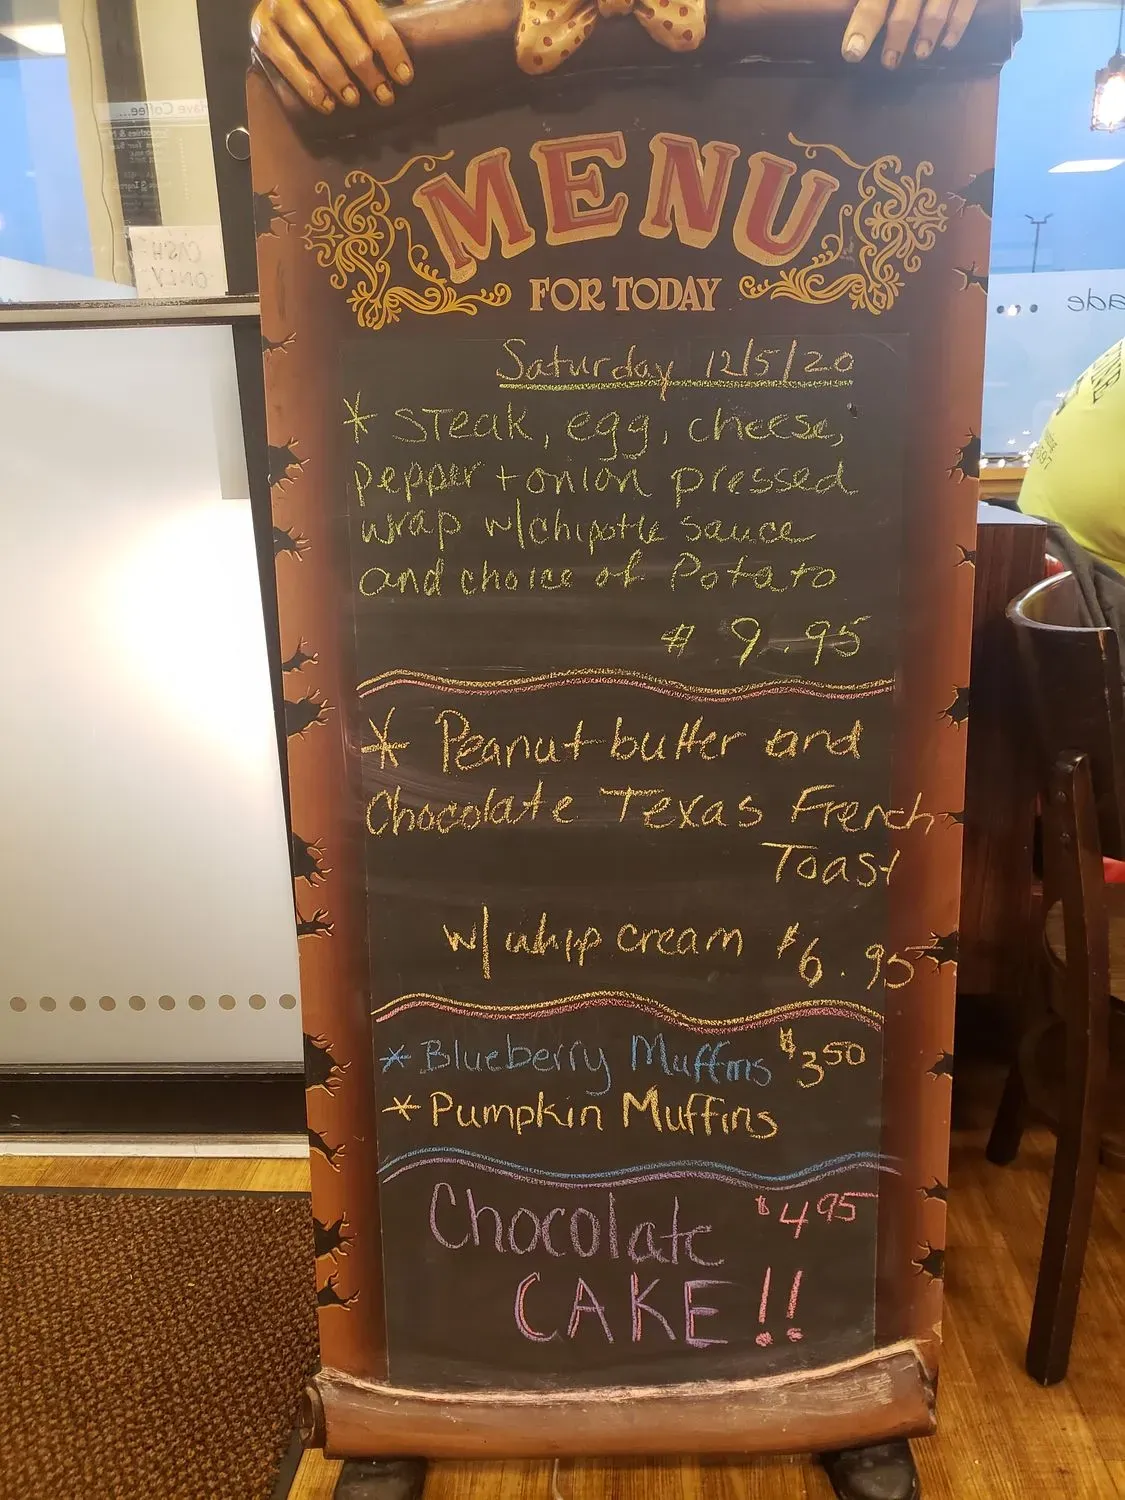 MENU
FOR TODAY
Saturday 12/5/20
* Steak, egg, cheese,
pepper + onion pressed
wrap w/chipotle sauce
and choice of Potato
$ 9.95
* Peanut butter and
Chocolate Texas French
Toast
w/ whip cream $6.95
* Blueberry Muffins $3.50
* Pumpkin Muffins
Chocolate $4.95
CAKE!!
Have Coffee...
CASH
ONLY